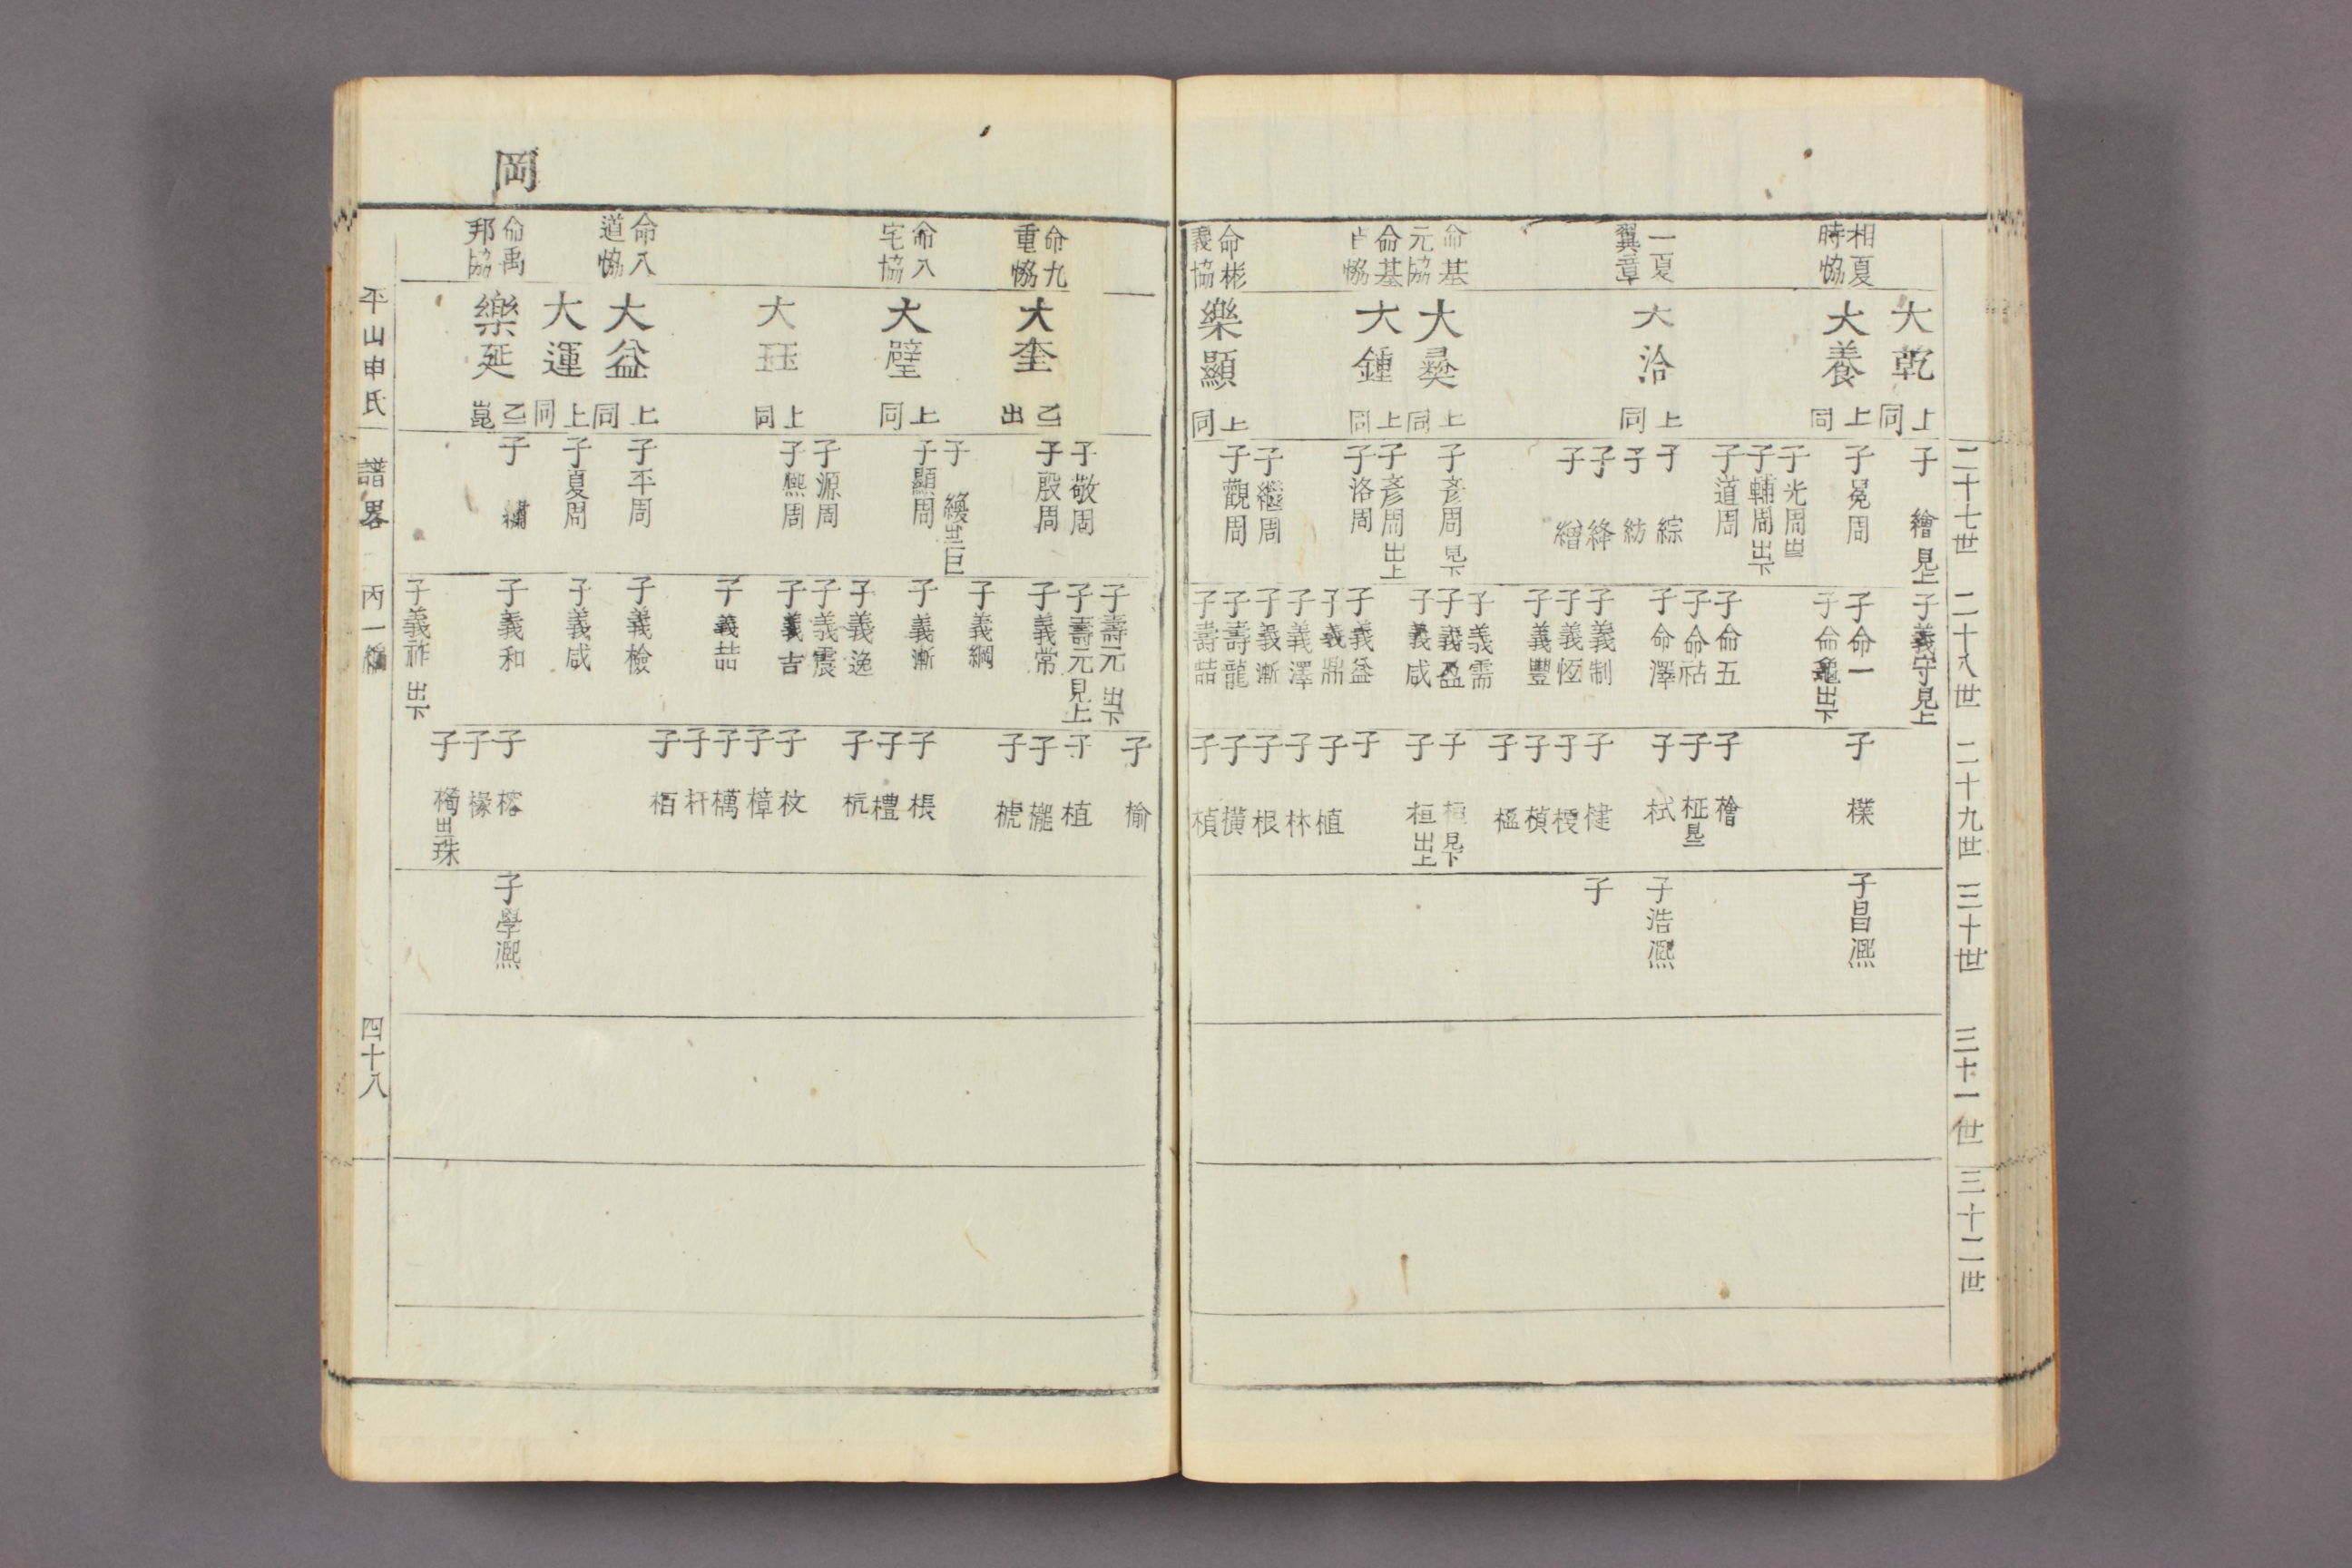 二十七世
二十八世
二十九世
三十世
三十一世
三十二世
相夏
時恊
一夏
翼章
命基
元協
命基
恊
命彬
義協
大乾
上同
大養
上同
大洽
上同
大彛
上同
大鍾
上同
樂顯
上同
子繪見上
子冕周
子光周
子輔周出下
子道周
子綜
子紡
子絳
子繒
子彥周見下
子彥周出上
子洛周
子繼周
子觀周
子義守見上
子命一
子命龜出下
子命五
子命祜
子命澤
子義制
子義恆
子義豐
子義需
子義盈
子義咸
子義益
子義鼎
子義澤
子義漸
子壽龍
子壽喆
子檏
子檜
子柾
子栻
子楗
子㮴
子楨
子楹
子桓見下
子桓出上
子
子植
子林
子根
子橫
子楨
子昌凞
子浩凞
子
岡
命九
重恊
命八
宅協
命八
道恊
命禹
邦協
大奎
乙出
大璧
上同
大珏
上同
大益
上同
大運
上同
樂延
乙崑
子敬周
子殷周
子纔
子顯周
子源周
子熙周
子平周
子夏周
子繡
子壽元出下
子壽元見上
子義常
子義綱
子義漸
子義逸
子義震
子義吉
子義喆
子義檢
子義咸
子義和
子義祚出下
子榆
子植
子櫳
子榩
子棖
子禮
子杭
子枚
子樟
子㰘
子杆
子栢
子榕
子椽
子
子學凞
平山申氏
譜畧
丙一編
四十八